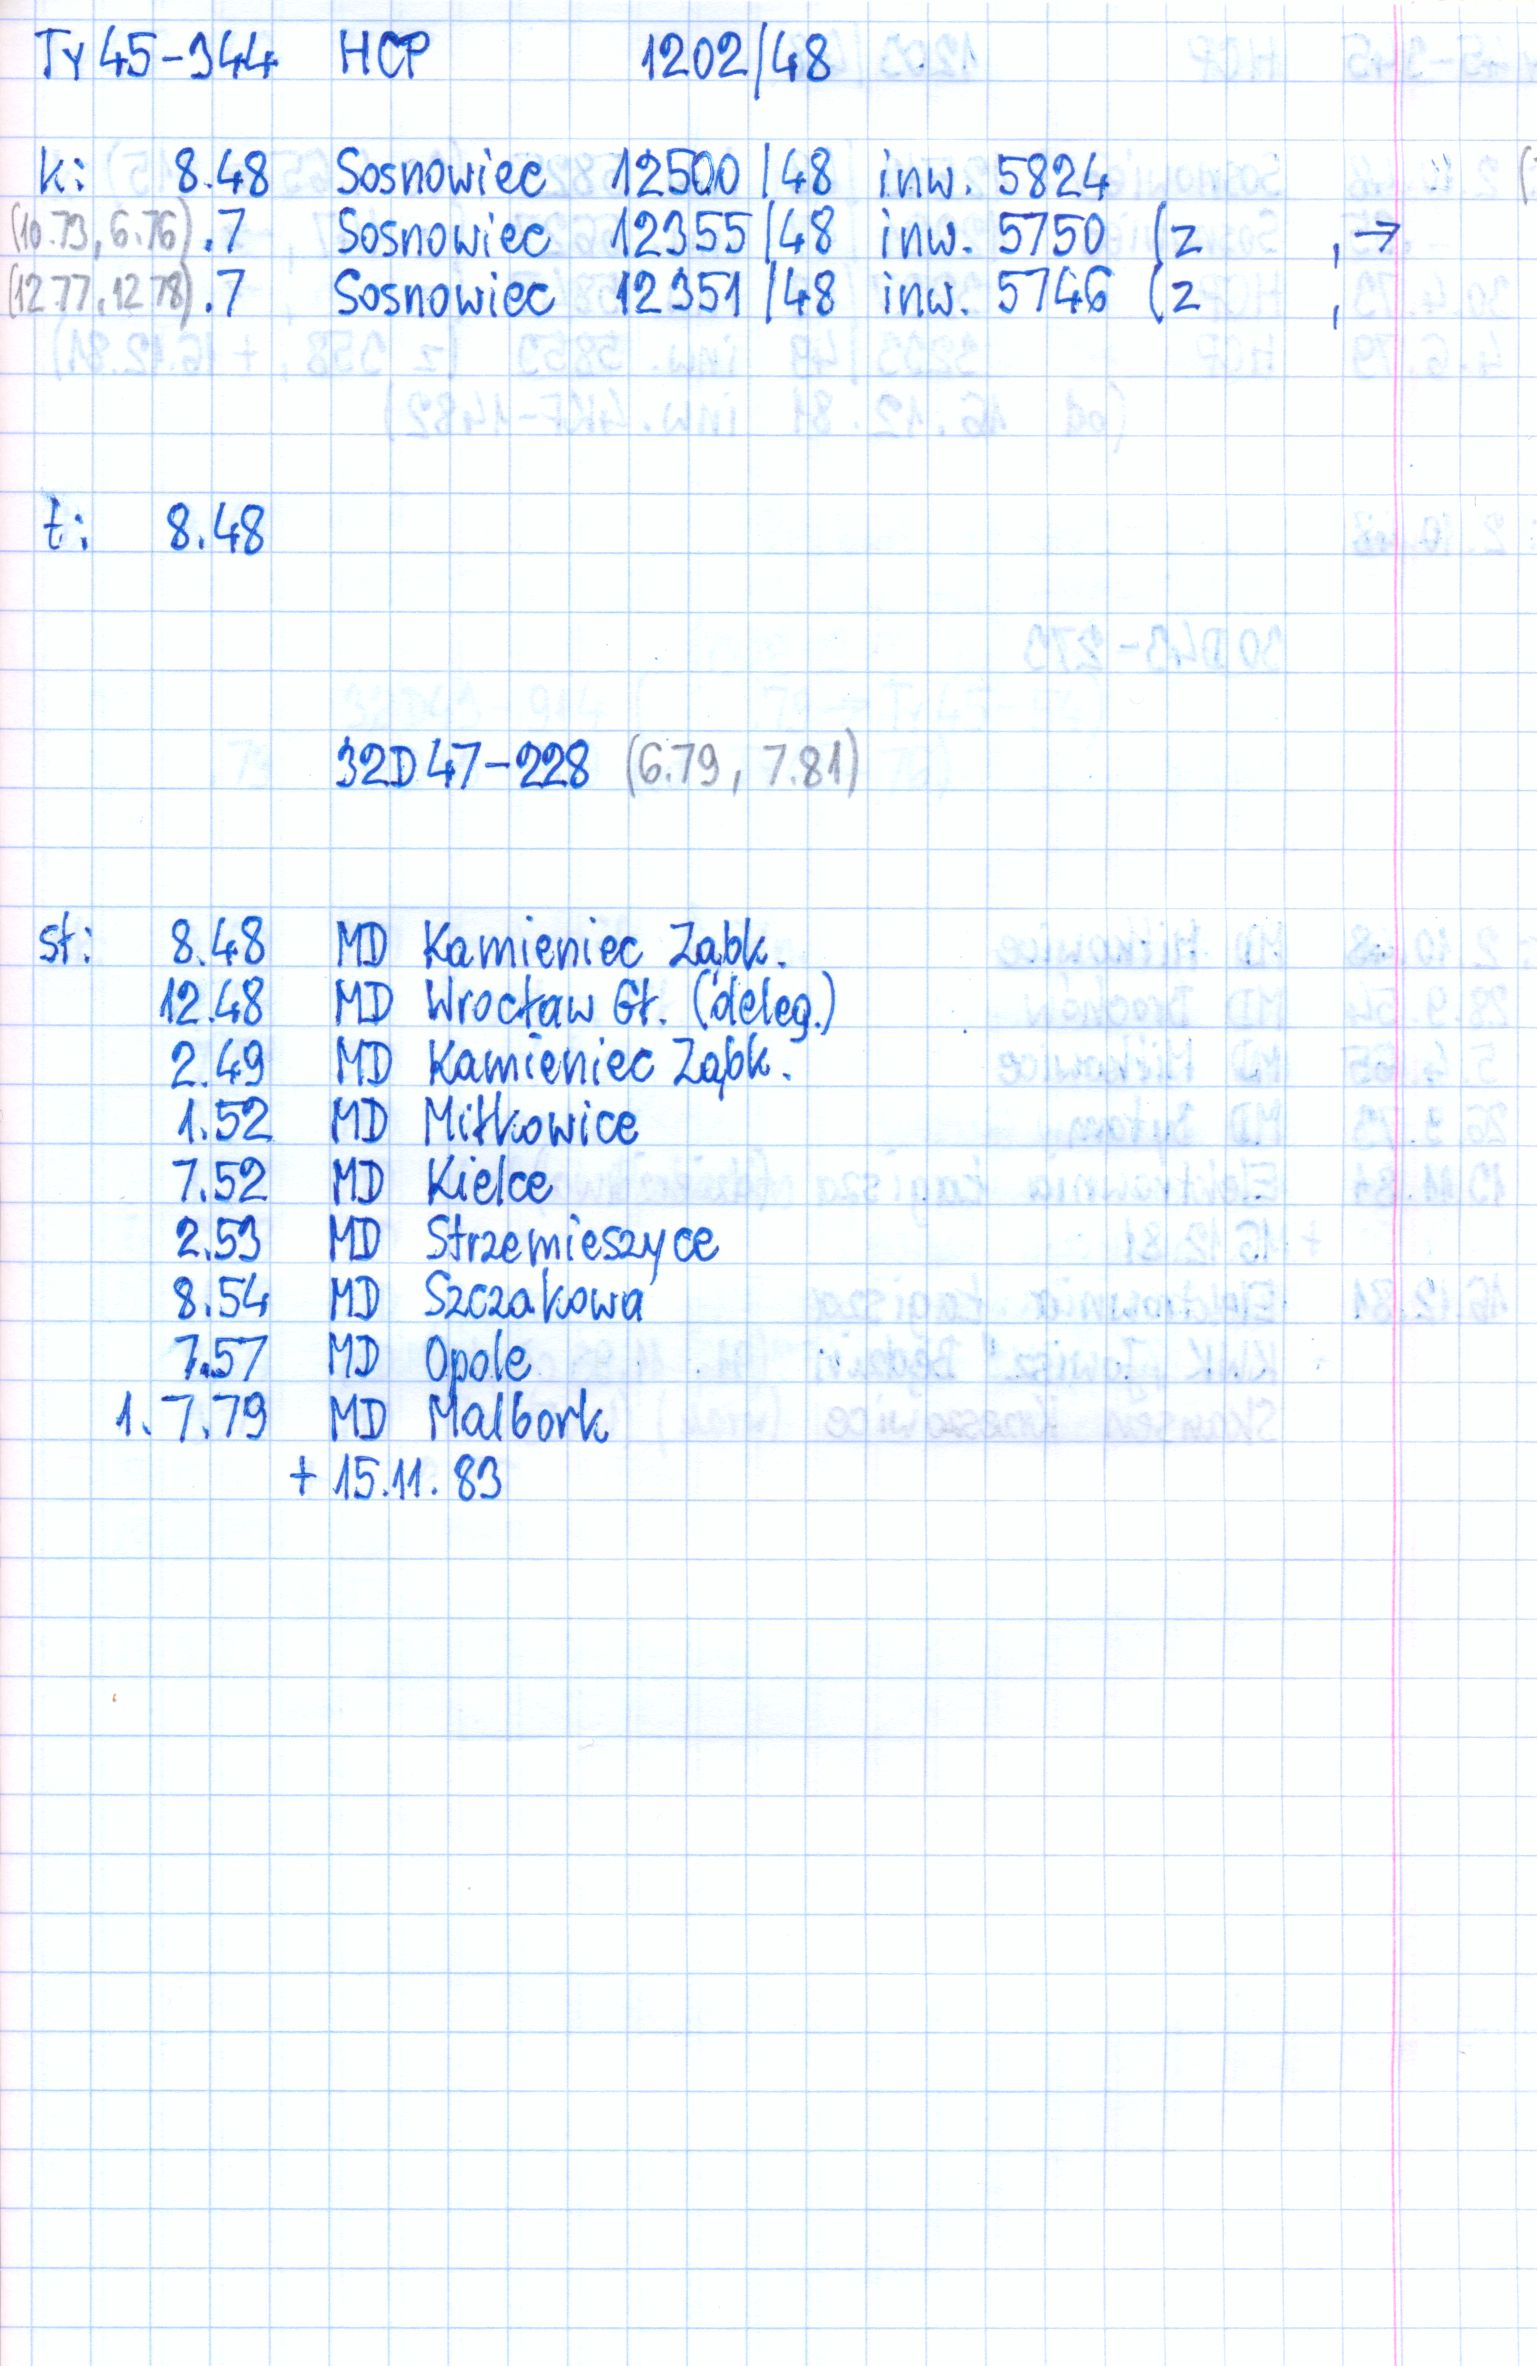 Ty45-344 HCP 1202/48
k: 8.48 Sosnowiec 12500/48 inw. 5824
(10.73, 6.76) .7 Sosnowiec 12355/48 inw. 5750 (z , →
(12.77, 12.78) .7 Sosnowiec 12351/48 inw. 5746 (z ,
t: 8.48
32D47-228 (6.79, 7.81)
st: 8.48 MD Kamieniec Ząbk.
12.48 MD Wrocław Gł. (deleg.)
2.49 MD Kamieniec Ząbk.
1.52 MD Miłkowice
7.52 MD Kielce
2.53 MD Strzemieszyce
8.54 MD Szczakowa
7.57 MD Opole
1.7.79 MD Malbork
+ 15.11.83